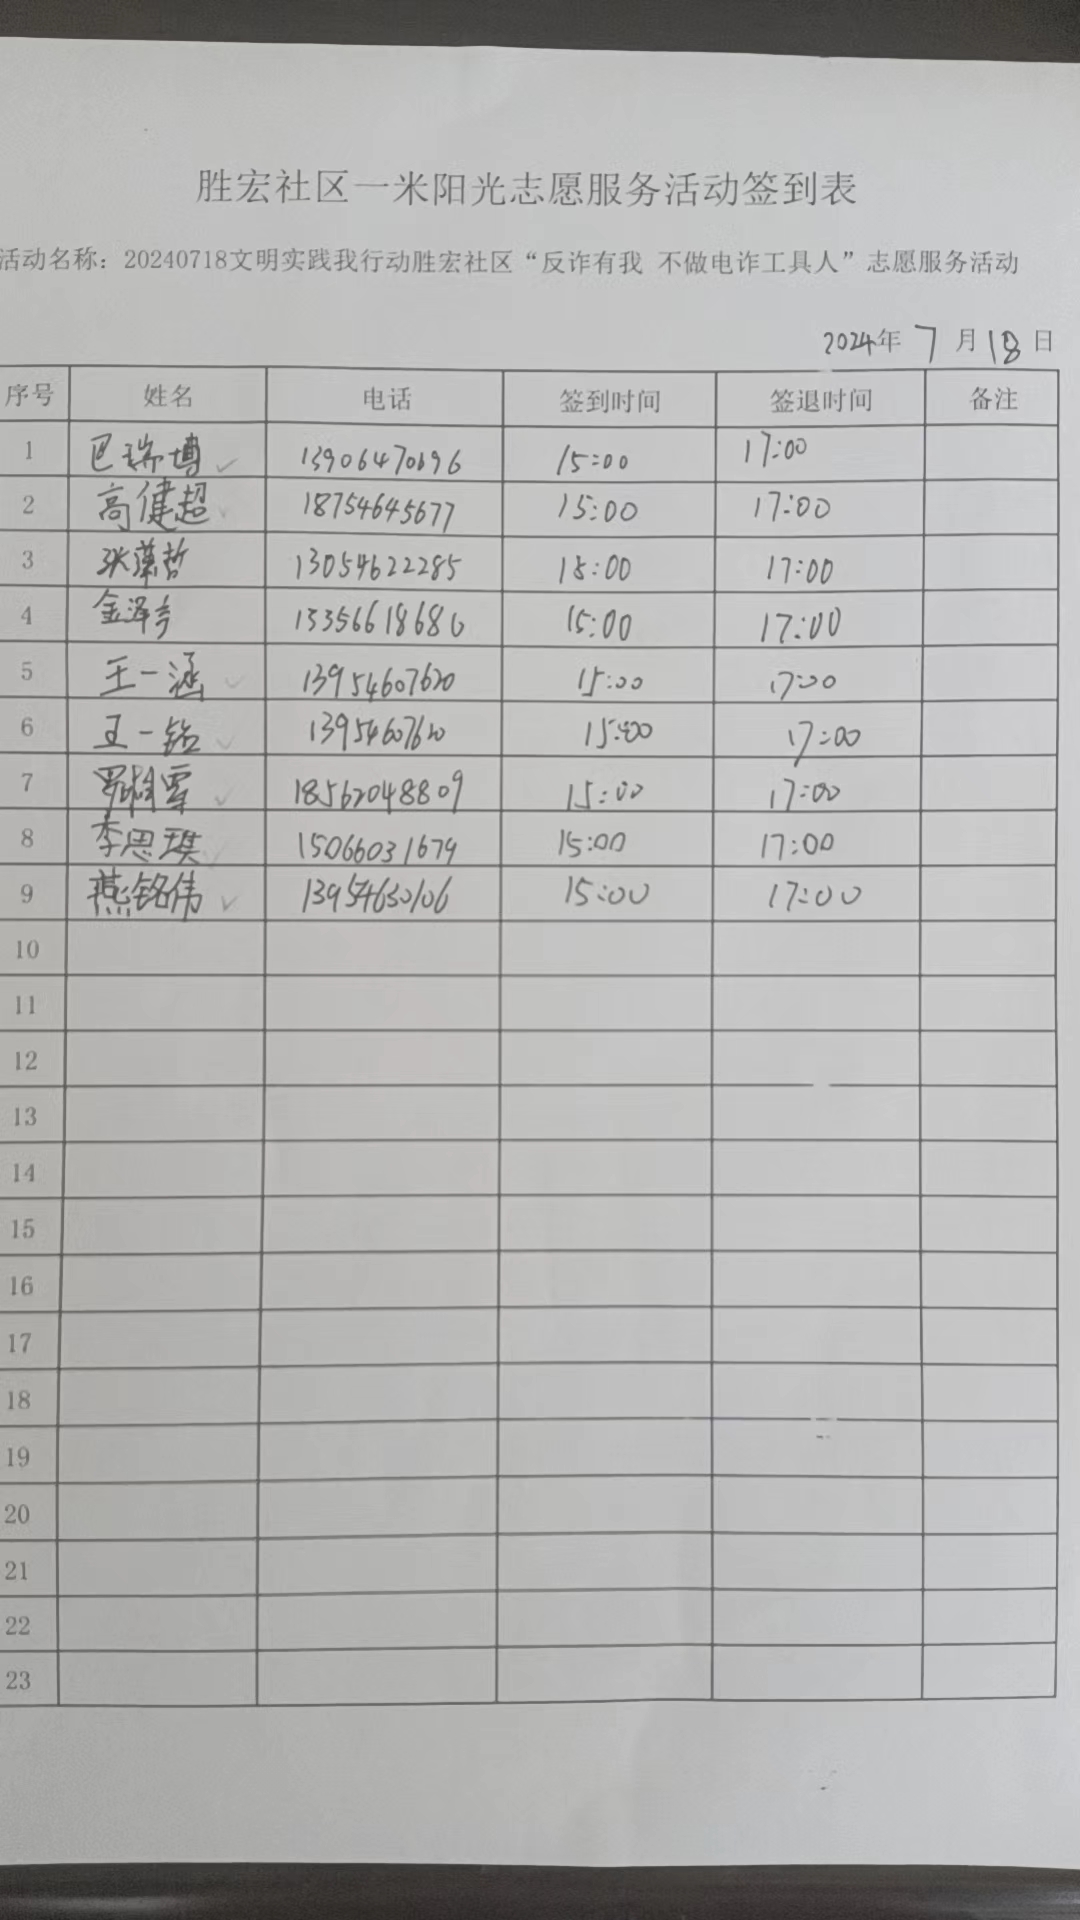 胜宏社区一米阳光志愿服务活动签到表
活动名称：20240718文明实践我行动胜宏社区“反诈有我 不做电诈工具人”志愿服务活动
2024年 7 月 18 日
序号 姓名 电话 签到时间 签退时间 备注
1 巴瑞博 13906470696 15:00 17:00
2 高健超 18754645677 15:00 17:00
3 13054622285 15:00 17:00
4 13356618686 15:00 17:00
5 王一涵 13954607620 15:00 17:00
6 王一铭 13954607620 15:00 17:00
7 18562048809 15:00 17:00
8 李思琪 15066031679 15:00 17:00
9 燕铭伟 13954630106 15:00 17:00
10
11
12
13
14
15
16
17
18
19
20
21
22
23